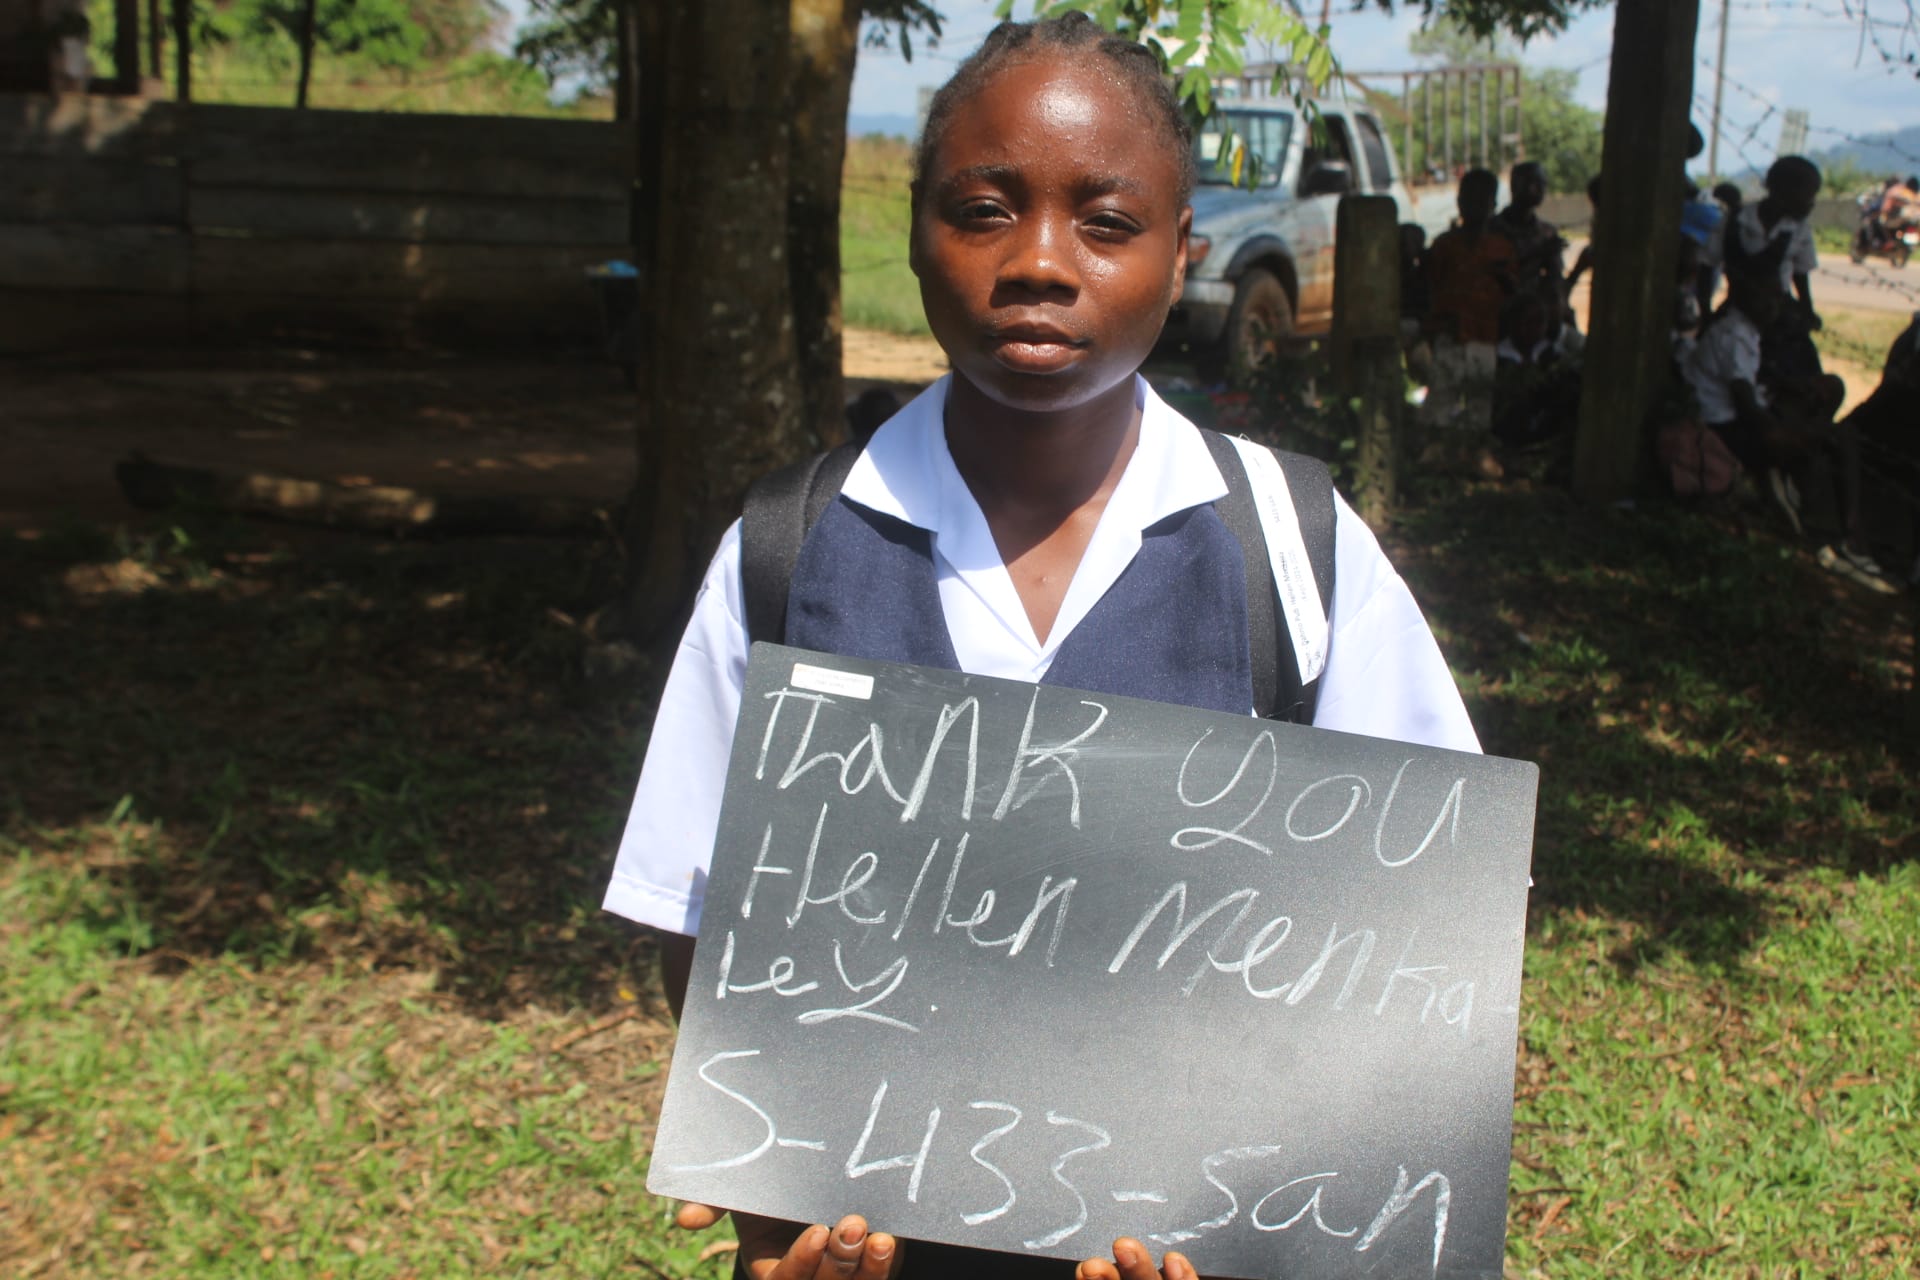 Thank you
Hellen Menka-
ley.
S-433-San